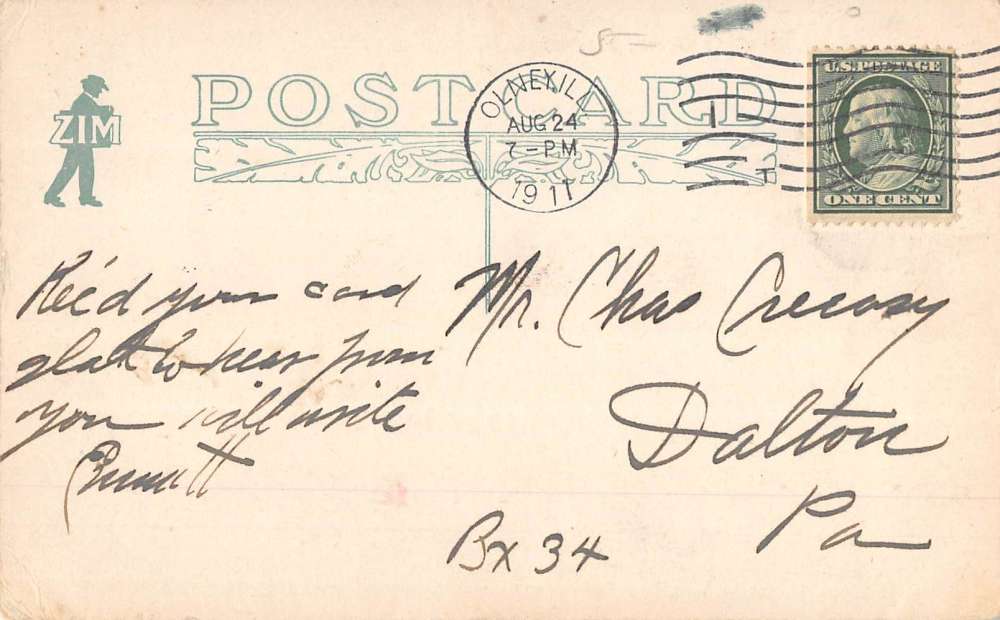 ZIM
POST CARD
OLNEY, ILL.
AUG 24
7-P.M
1911
U.S. POSTAGE
ONE CENT
Rec'd your card
glad to hear from
you will write
Emmett
Mr. Chas Creeasy
Dalton
Pa
Bx 34